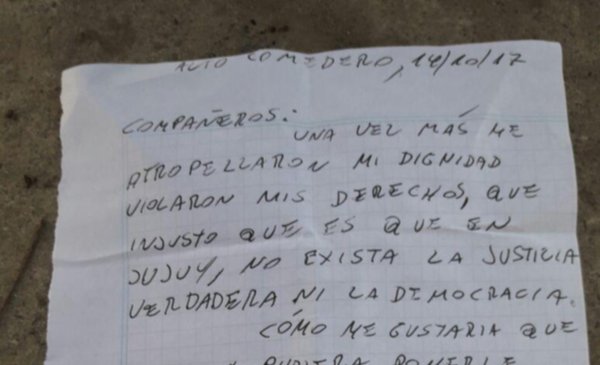 ALTO COMEDERO, 14/10/17
COMPAÑEROS:
UNA VEZ MÁS ME
ATROPELLARON MI DIGNIDAD
VIOLARON MIS DERECHOS, QUE
INJUSTO QUE ES QUE EN
JUJUY, NO EXISTA LA JUSTICIA
VERDADERA NI LA DEMOCRACIA.
CÓMO ME GUSTARIA QUE
PUDIERA PONERLE